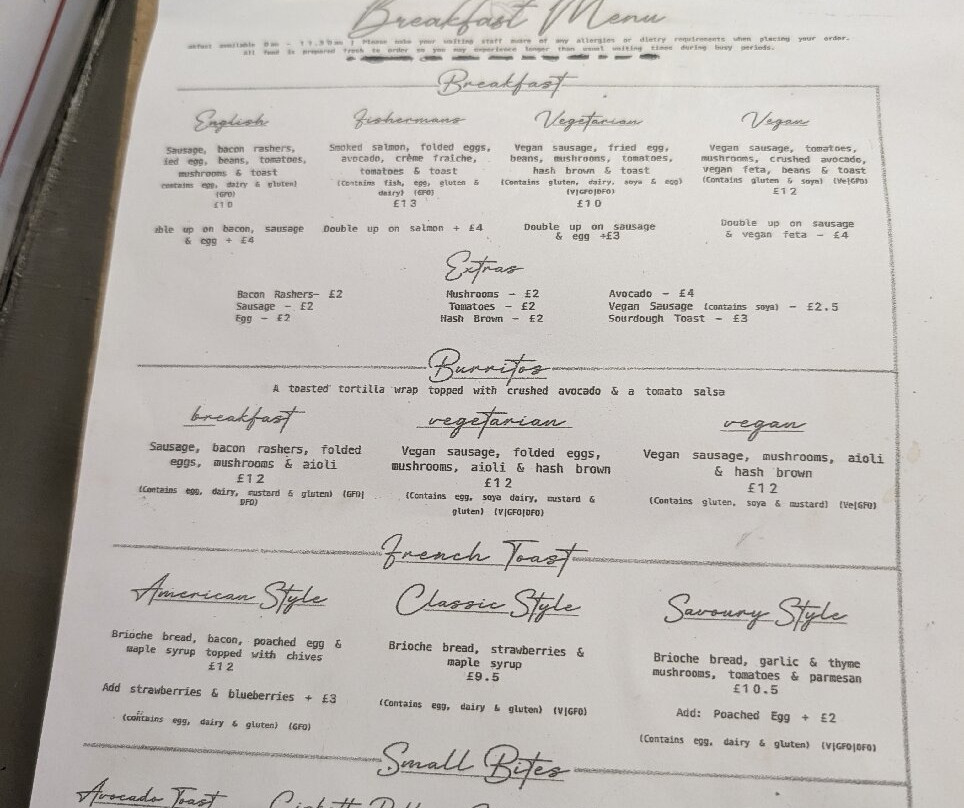 Breakfast Menu
available 8am - 11.30am | Please make your waiting staff aware of any allergies or dietry requirements when placing your order.
all food is prepared fresh to order so you may experience longer than usual waiting times during busy periods.
Breakfast
English
Sausage, bacon rashers,
ied egg, beans, tomatoes,
mushrooms & toast
contains egg, dairy & gluten)
(GFO)
£10
ble up on bacon, sausage
& egg + £4
Fishermans
Smoked salmon, folded eggs,
avocado, crème fraîche,
tomatoes & toast
(Contains fish, egg, gluten &
dairy) (GFO)
£13
Double up on salmon + £4
Vegetarian
Vegan sausage, fried egg,
beans, mushrooms, tomatoes,
hash brown & toast
(Contains gluten, dairy, soya & egg)
(V|GFO|DFO)
£10
Double up on sausage
& egg +£3
Vegan
Vegan sausage, tomatoes,
mushrooms, crushed avocado,
vegan feta, beans & toast
(Contains gluten & soya) (Ve|GFO)
£12
Double up on sausage
& vegan feta - £4
Extras
Bacon Rashers- £2
Sausage - £2
Egg - £2
Mushrooms - £2
Tomatoes - £2
Hash Brown - £2
Avocado - £4
Vegan Sausage (contains soya) - £2.5
Sourdough Toast - £3
Burritos
A toasted tortilla wrap topped with crushed avocado & a tomato salsa
breakfast
Sausage, bacon rashers, folded
eggs, mushrooms & aioli
£12
(Contains egg, dairy, mustard & gluten) (GFO|
DFO)
vegetarian
Vegan sausage, folded eggs,
mushrooms, aioli & hash brown
£12
(Contains egg, soya dairy, mustard &
gluten) (V|GFO|DFO)
vegan
Vegan sausage, mushrooms, aioli
& hash brown
£12
(Contains gluten, soya & mustard) (Ve|GFO)
French Toast
American Style
Brioche bread, bacon, poached egg &
maple syrup topped with chives
£12
Add strawberries & blueberries + £3
(contains egg, dairy & gluten) (GFO)
Classic Style
Brioche bread, strawberries &
maple syrup
£9.5
(Contains egg, dairy & gluten) (V|GFO)
Savoury Style
Brioche bread, garlic & thyme
mushrooms, tomatoes & parmesan
£10.5
Add: Poached Egg + £2
(Contains egg, dairy & gluten) (V|GFO|DFO)
Small Bites
Avocado Toast